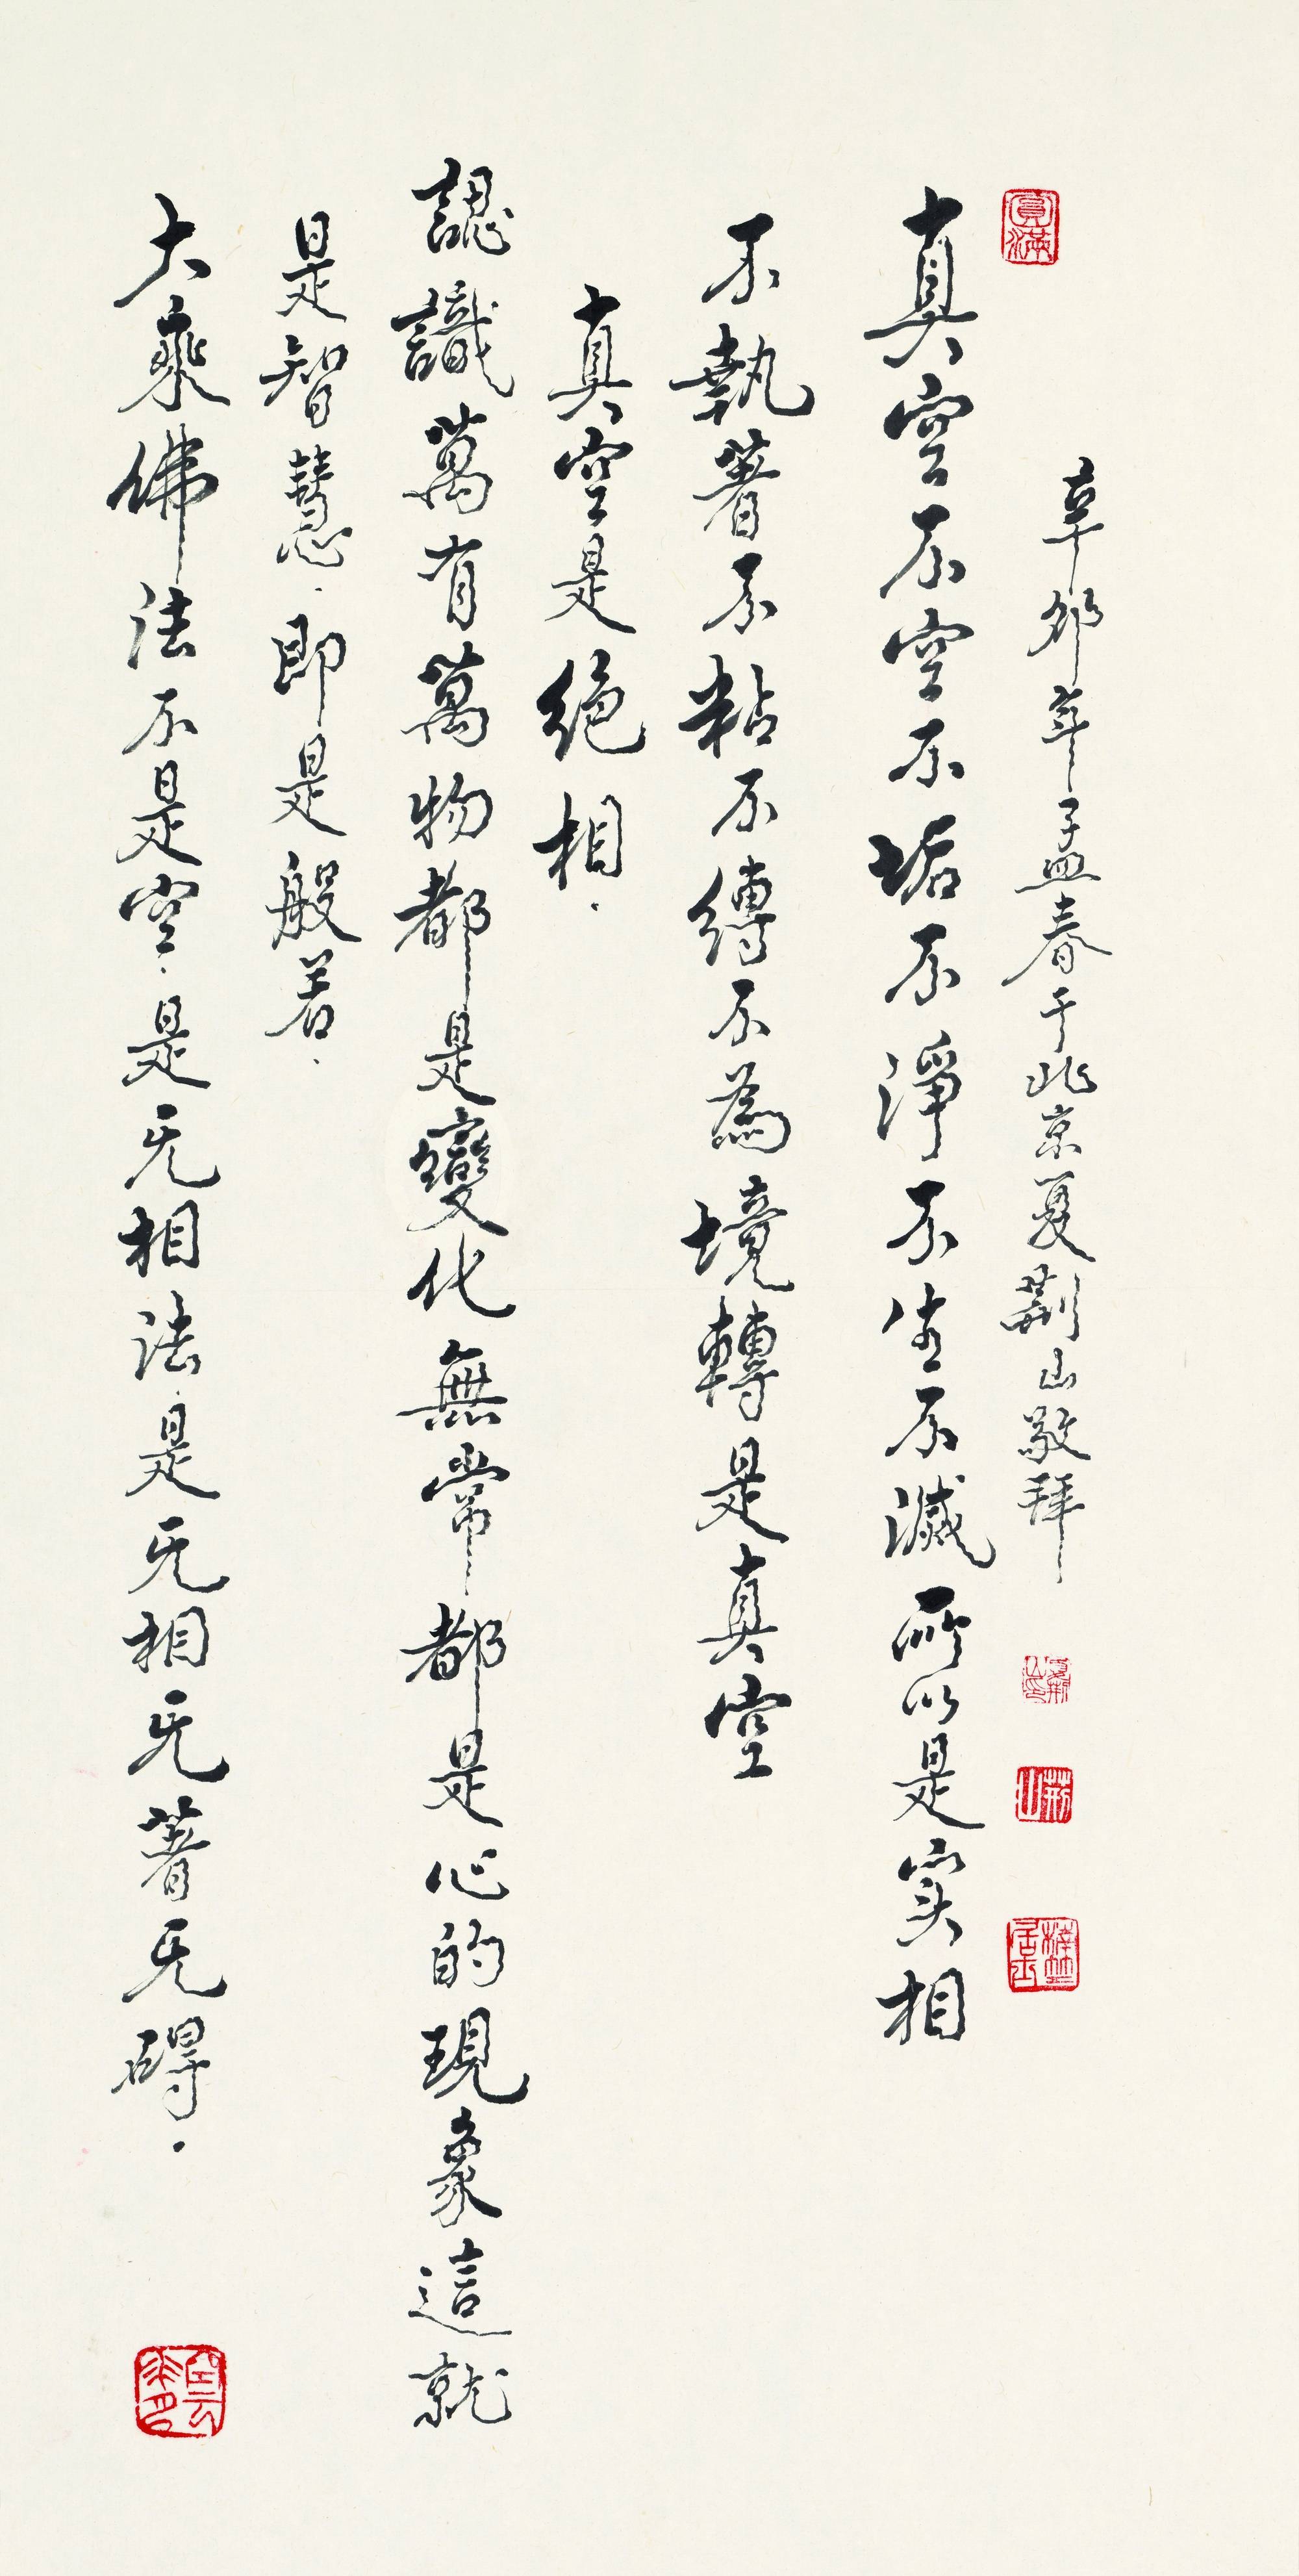 圓滿
辛卯年孟春于北京夏荊山敬拜
荊山
真空不空不垢不淨不生不滅所以是实相
不執著不粘不縛不為境轉是真空
真空是絕相.
認識萬有萬物都是變化無常都是心的現象這就
是智慧.即是般若.
大乘佛法不是空.是无相法.是无相无著无碍.